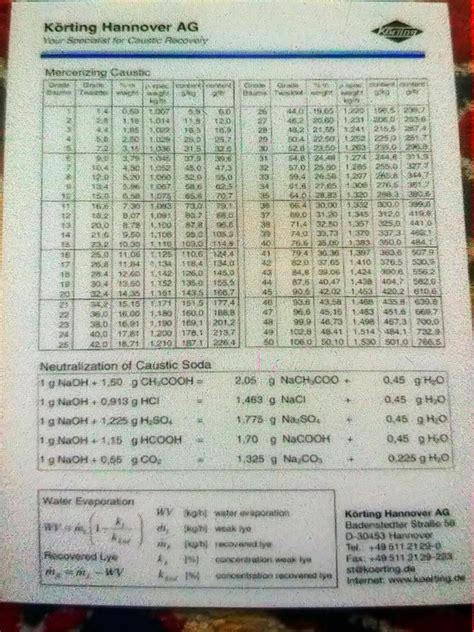 Körting Hannover AG
Your Specialist for Caustic Recovery
Körting
Mercerizing Caustic
Grade Baume Grade Twaddell % in weight spec. weight kg/ltr content g/kg content g/ltr
Grade Baume Grade Twaddell % in weight spec. weight kg/ltr content g/kg content g/ltr
1 1,4 0,59 1,007 5,9 6,0
2 2,8 1,18 1,014 11,8 12,0
3 4,4 1,85 1,022 18,5 18,9
4 5,6 2,50 1,029 25,0 25,7
5 7,2 3,15 1,036 31,5 32,6
6 9,0 3,79 1,045 37,9 39,6
7 10,4 4,50 1,052 45,0 47,3
8 12,0 5,20 1,060 52,0 55,0
9 13,4 5,86 1,067 58,6 62,5
10 15,0 6,58 1,075 65,8 70,7
11 16,6 7,30 1,083 73,0 79,1
12 18,2 8,07 1,091 80,7 88,0
13 20,0 8,78 1,100 87,8 96,6
14 21,6 9,50 1,108 95,0
15 23,2 10,30 103,0 114,9
16 25,0 11,06 1,125 110,6 124,4
17 26,8 1,134 118,4 134,0
18 28,4 12,60 1,142 126,0 145,0
19 30,4 13,50 1,152 135,0 155,5
20 32,4 14,35 1,161 143,5
21 34,2 15,15 1,171 151,5 177,4
22 36,0 16,00 1,180 160,0 188,8
23 38,0 16,91 1,190 169,1 201,2
24 40,0 17,81 1,200 178,1 213,7
25 42,0 18,71 1,210 187,1 226,4
26 44,0 19,65 1,220 196,5
27 46,2 20,60 1,231 206,0 253,6
28 48,2 21,55 1,241 215,5 267,4
29 50,4 22,50 1,252 225,0 281,7
30 52,6 23,50 1,263 235,0 296,8
31 54,8 1,274 311,9
32 57,0 25,50 1,285 255,0 327,7
33 59,4 26,58 1,297 265,8 344,7
34 61,6 27,65 1,308 276,5 361,7
35 64,0 28,83 1,320 288,3 380,6
36 66,4 30,00 1,332 300,0 399,6
37 69,0 31,20 1,345 312,0 419,6
38 71,4 32,50 1,357 325,0 441,0
39 74,0 33,73 1,370 337,3 462,1
40 76,6 35,00 1,383 350,0 484,1
41 79,4 36,36 1,397 363,6 507,9
42 82,0 37,65 1,410 376,5 530,9
43 84,8 39,06 1,424 390,6 556,2
44 87,6 40,47 1,438 404,7 582,0
45 90,6 42,02 1,453 420,2 610,6
46 93,6 43,58 1,468 435,8 639,8
47 96,6 45,16 1,483 451,6 669,7
48 99,8 46,73 1,498 467,3 700,0
49 102,8 48,41 1,514 484,1 732,9
50 106,0 50,10 1,530 501,0 766,5
Neutralization of Caustic Soda
1 g NaOH + 1,50 g CH₃COOH = 2,05 g NaCH₃COO + 0,45 g H₂O
1 g NaOH + 0,913 g HCl = 1,463 g NaCl + 0,45 g H₂O
1 g NaOH + 1,225 g H₂SO₄ = 1,775 g Na₂SO₄ + 0,45 g H₂O
1 g NaOH + 1,15 g HCOOH = 1,70 g NaCOOH + 0,45 g H₂O
1 g NaOH + 0,55 g CO₂ = 1,325 g Na₂CO₃ + 0,225 g H₂O
Water Evaporation
WV [kg/h] water evaporation
[kg/h] weak lye
[kg/h] recovered lye
[%] concentration weak lye
[%] concentration recovered lye
Recovered Lye
Körting Hannover AG
Badenstedter Straße 56
D-30453 Hannover
Tel. +49 511 2129-0
Fax: +49 511 2129-223
st@koerting.de
Internet: www.koerting.de